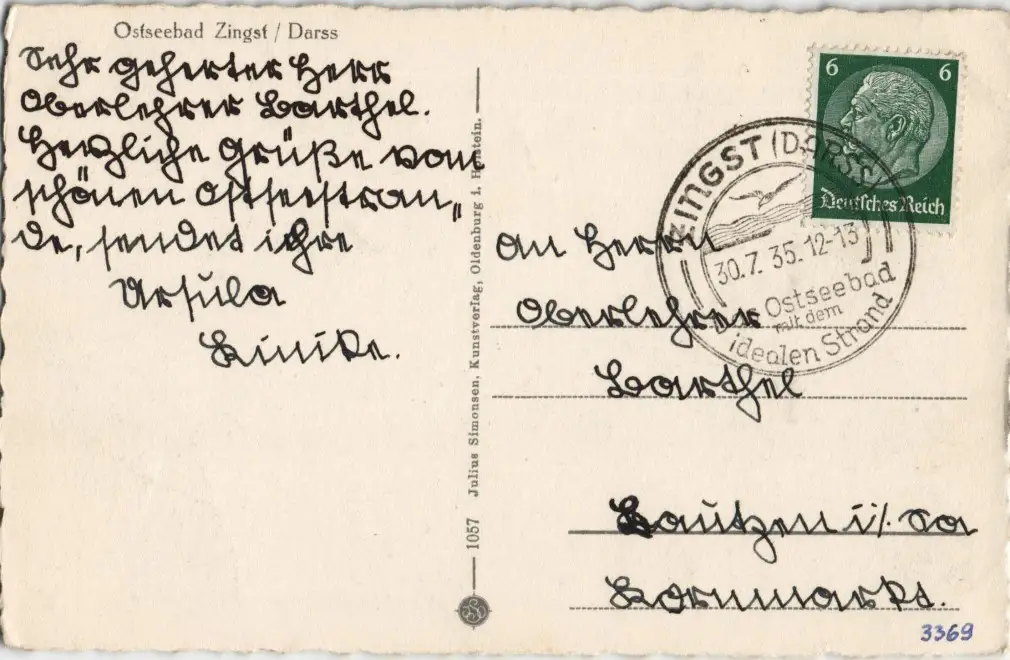 Ostseebad Zingst / Darss
Sehr geherter Herr
Oberlehrer Barthel.
Herzliche Grüße vom
schönen Ostseestran„
de, sendet ihre
Ursula
1057 Julius Simonsen, Kunstverlag, Oldenburg i. Holstein.
6 6
Deutsches Reich
ZINGST (DARSS)
30.7.35.12-13
Ostseebad
mit dem
idealen Strand
An Herrn
Oberlehrer
Barthel
Bautzen i/. Sa
Kornmarkt.
3369